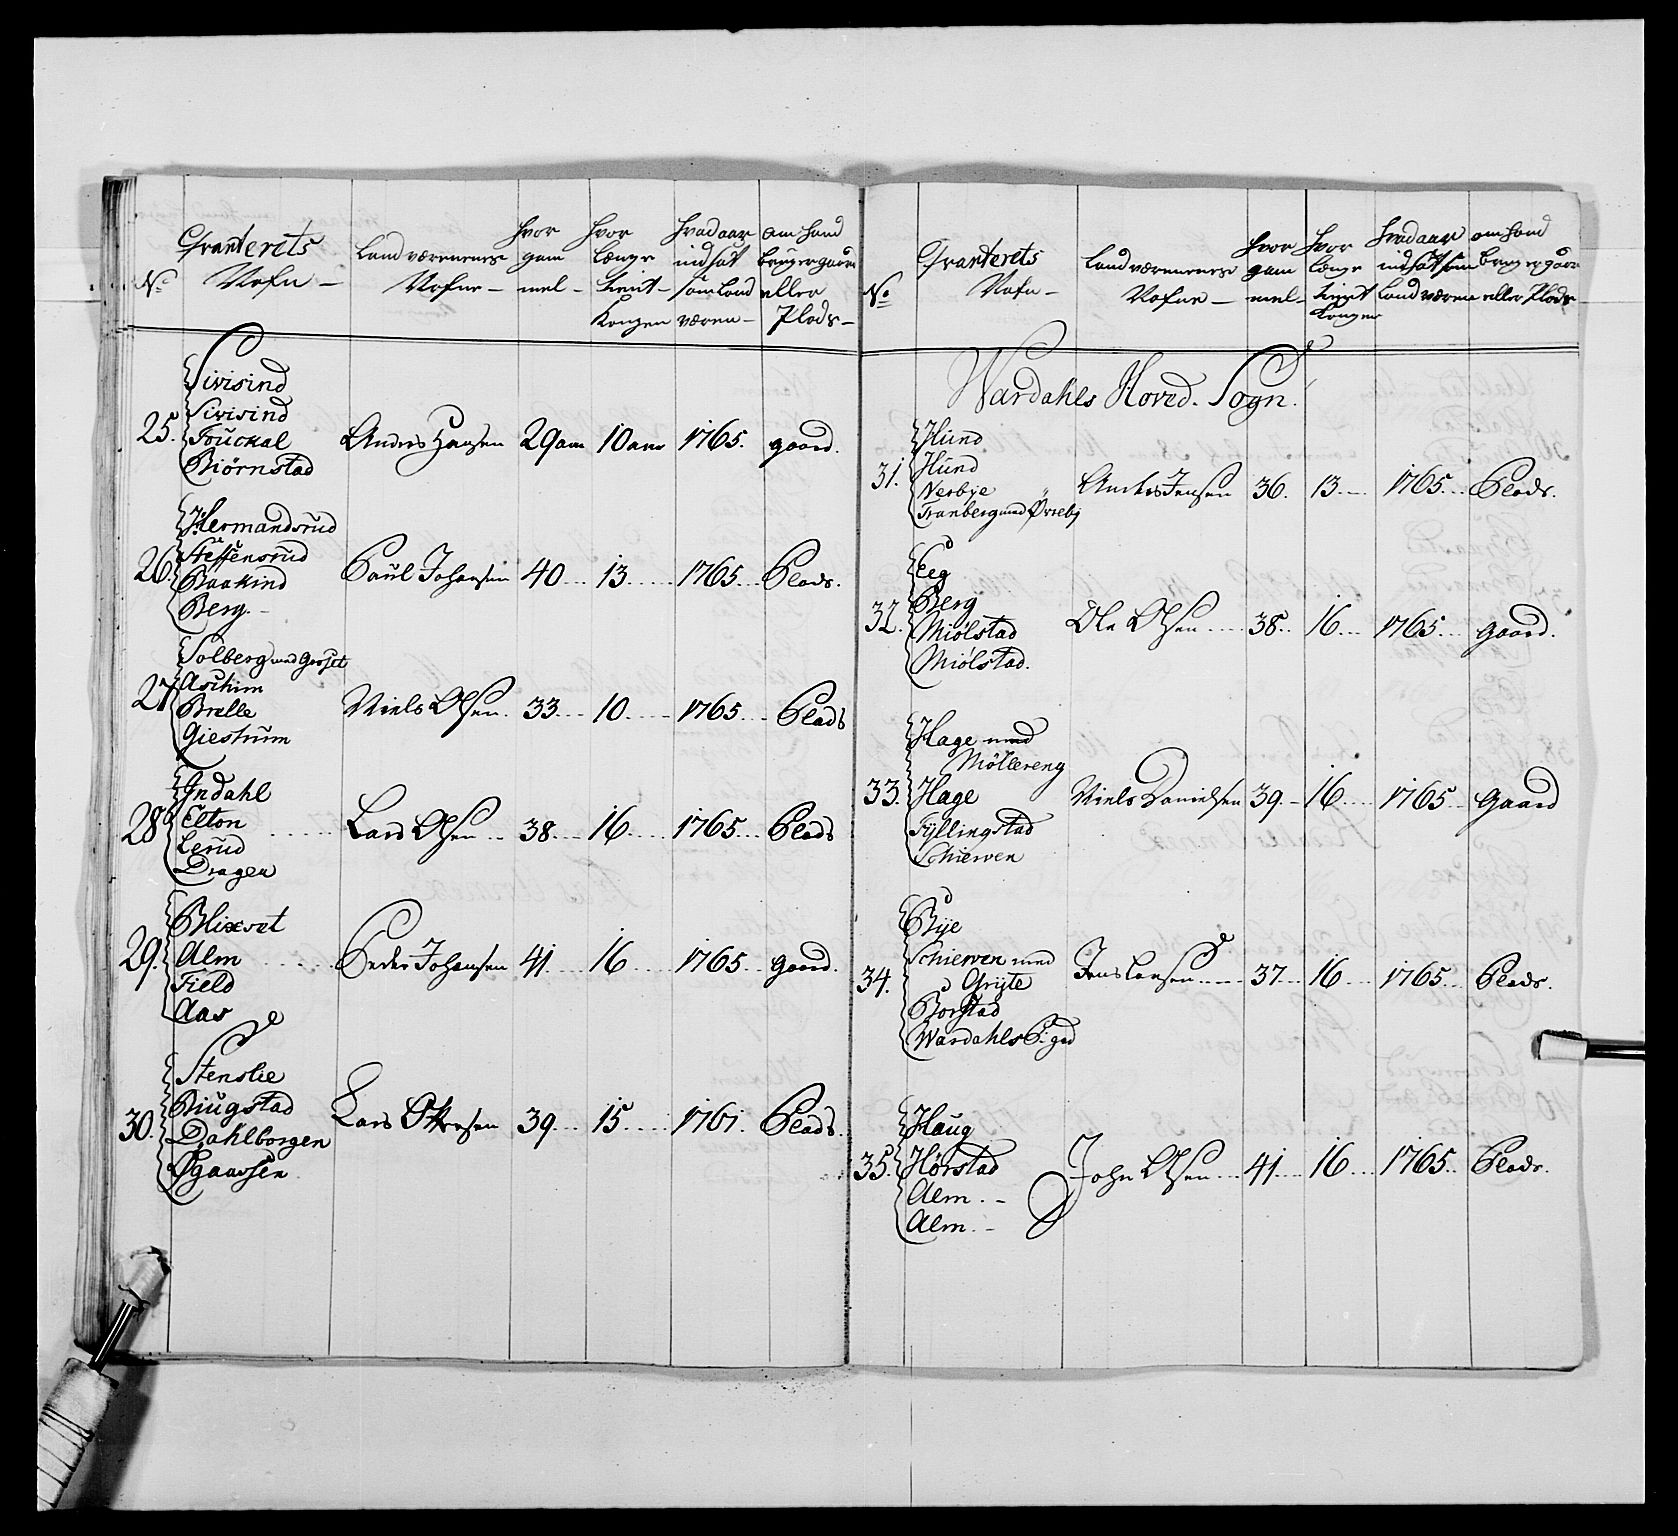 No
Qvarterets Nafn —
Landværenenes Nafne —
hvor gam mel —
hvor længe tient Kongen
hvad aar indsat som Land væren —
om hand bruger gaard eller Plads —
25. Sivisind
Sivisind
Biørnstad
Anders Hansen 29 aar 10 aar 1765. gaard.
26. Hermandsrud
Steffensrud
Baakind
Berg. —
Paul Johansen 40 13 1765 Plads.
27 Solberg med
Aschim
Brelle
Giestrum
Niels Olsen. 33 10 1765 Plads
28 Indahl
Elton
Lerud
Dragen
Lars Olsen 38 16 1765 Plads
29. Blixret
Alm
Field
Aas
Peder Johansen 41 16 1765 gaard.
30. Stenslie
Biugstad
Dahlborgen
Lars 39 15 1761 Plads.
No
Qvarterets Nafn —
Landværenenes Nafne —
hvor gam mel —
hvor længe tient Kongen
hvad aar indsat som Land væren
om hand bruger gaard eller Plads —
Wardahls Hoved. Sogn.
31. Hund
Hund
Nerbye
Tranberg med Øvrebj
Anders Jensen 36. 13 1765 Plads.
32. Eeg
Berg
Miølstad
Miølstad.
Ole Olsen 38 16 1765 gaard.
33. Hage med
Møllereng
Hage
Fyllingstad
Schierven
Niels Danielsen 39 16 1765 Gaard
34. Bye
Schierven med
Gryte
Borstad
Wardahls P: gd
Jens Larsen 37 16 1765 Plads.
35. Haug
Hørstad
Alm. —
Alm. —
John Olsen 41 16 1765 Plads.